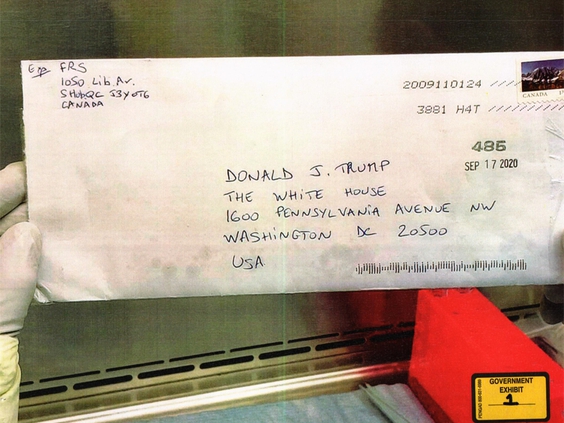 Exp FRS
1050 Lib Av.
SHubQC J3Y 0T6
CANADA
2009110124
3881 H4T
CANADA
485
SEP 17 2020
DONALD J. TRUMP
THE WHITE HOUSE
1600 PENNSYLVANIA AVENUE NW
WASHINGTON DC 20500
USA
GOVERNMENT
EXHIBIT
1